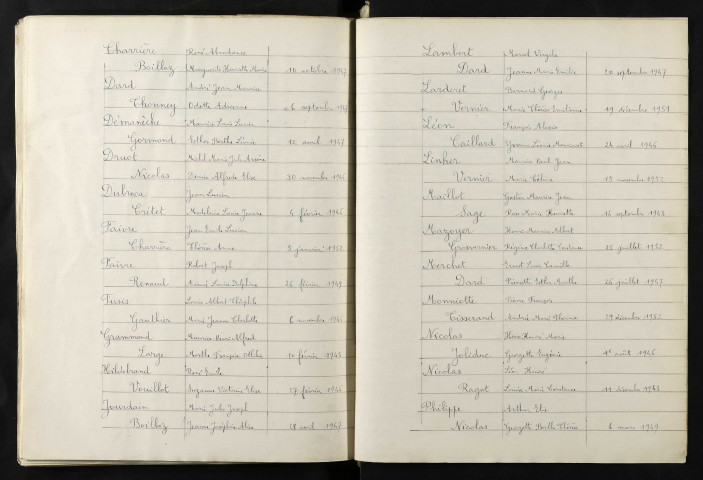 Charrière René Abondance
Boilloz Marguerite Henriette Marie 10 octobre 1947
Dard André Jean Maurice
Thonney Odette Adrienne 26 septembre 1947
Démanèche Maurice Louis Lucien
Gormond Esther Berthe Léonie 12 avril 1947
Druot Marie Jules
Nicolas Denise Alfrede Elise 30 novembre 1946
Dubroca Jean Lucien
Critet Madeleine Louise Jeanne 4 février 1946
Faivre Jean Emile Lucien
Charrière Thérèse Anne 2 janvier 1952
Faivre Robert Joseph
Renaud Noémi Louise Delphine 26 février 1949
Louis Albert Théophile
Gauthier Marie Jeanne Charlotte 6 novembre
Grammond Maurice Henri Alfred
Large Marthe Françoise 10 février 1945
Hildebrand René Emile
Vouillot Suzanne Victorine Elise 17 février 1946
Jourdain Marie Jules Joseph
Boilloz Jeanne Joséphine Alice 18 avril 1947
Lambert Marcel Virgile
Dard Jeanne Marie Emilie 20 septembre 1947
Larderet Bernard Georges
Vernier Marie Thérèse Emilienne 19 décembre 1951
Léon François Alexis
Caillard Yvonne Louise 24 avril 1946
Linher Maurice Paul Jean
Vernier Marie Céline 15 novembre 1952
Maillot Gaston Maurice Jean
Sage Rose Marie Henriette 16 septembre 1948
Mazoyer Henri Maurice Albert
Grosvernier Régine Charlotte 25 juillet 1952
Merchet Ernest Louis Camille
Dard Pierrette Esther Marthe 26 juillet 1947
Monniotte Pierre François
Tisserand Andrée Marie Thérèse 29 décembre 1952
Nicolas Henri Marie
Jolidue Georgette Eugénie 1er août 1946
Nicolas Léon Henri
Ragot Louise Marie Constance 11 décembre 1948
Philippe Arthur Elie
Nicolas Georgette Berthe Thérèse 6 mars 1949